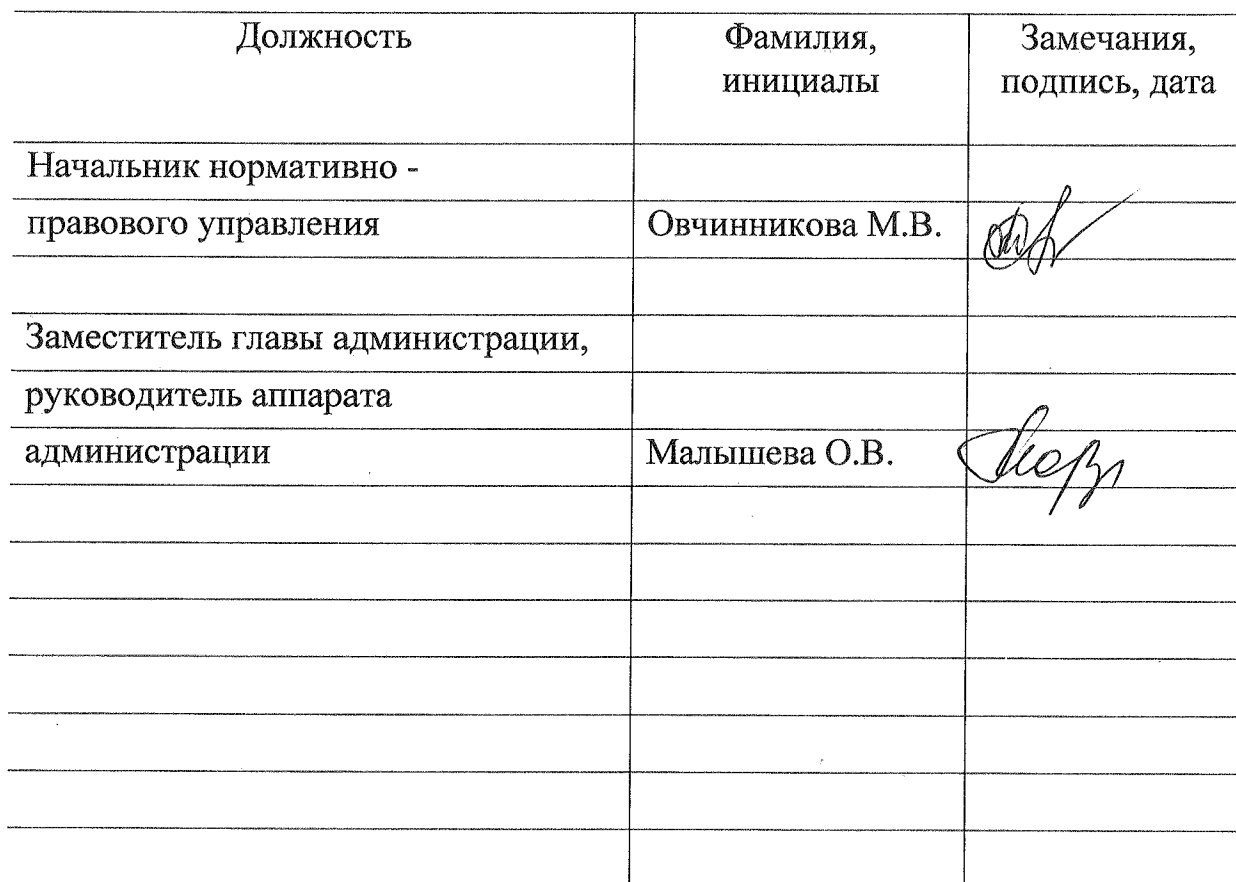 Должность Фамилия, Замечания,
инициалы подпись, дата
Начальник нормативно -
правового управления Овчинникова М.В.
Заместитель главы администрации,
руководитель аппарата
администрации Малышева О.В.